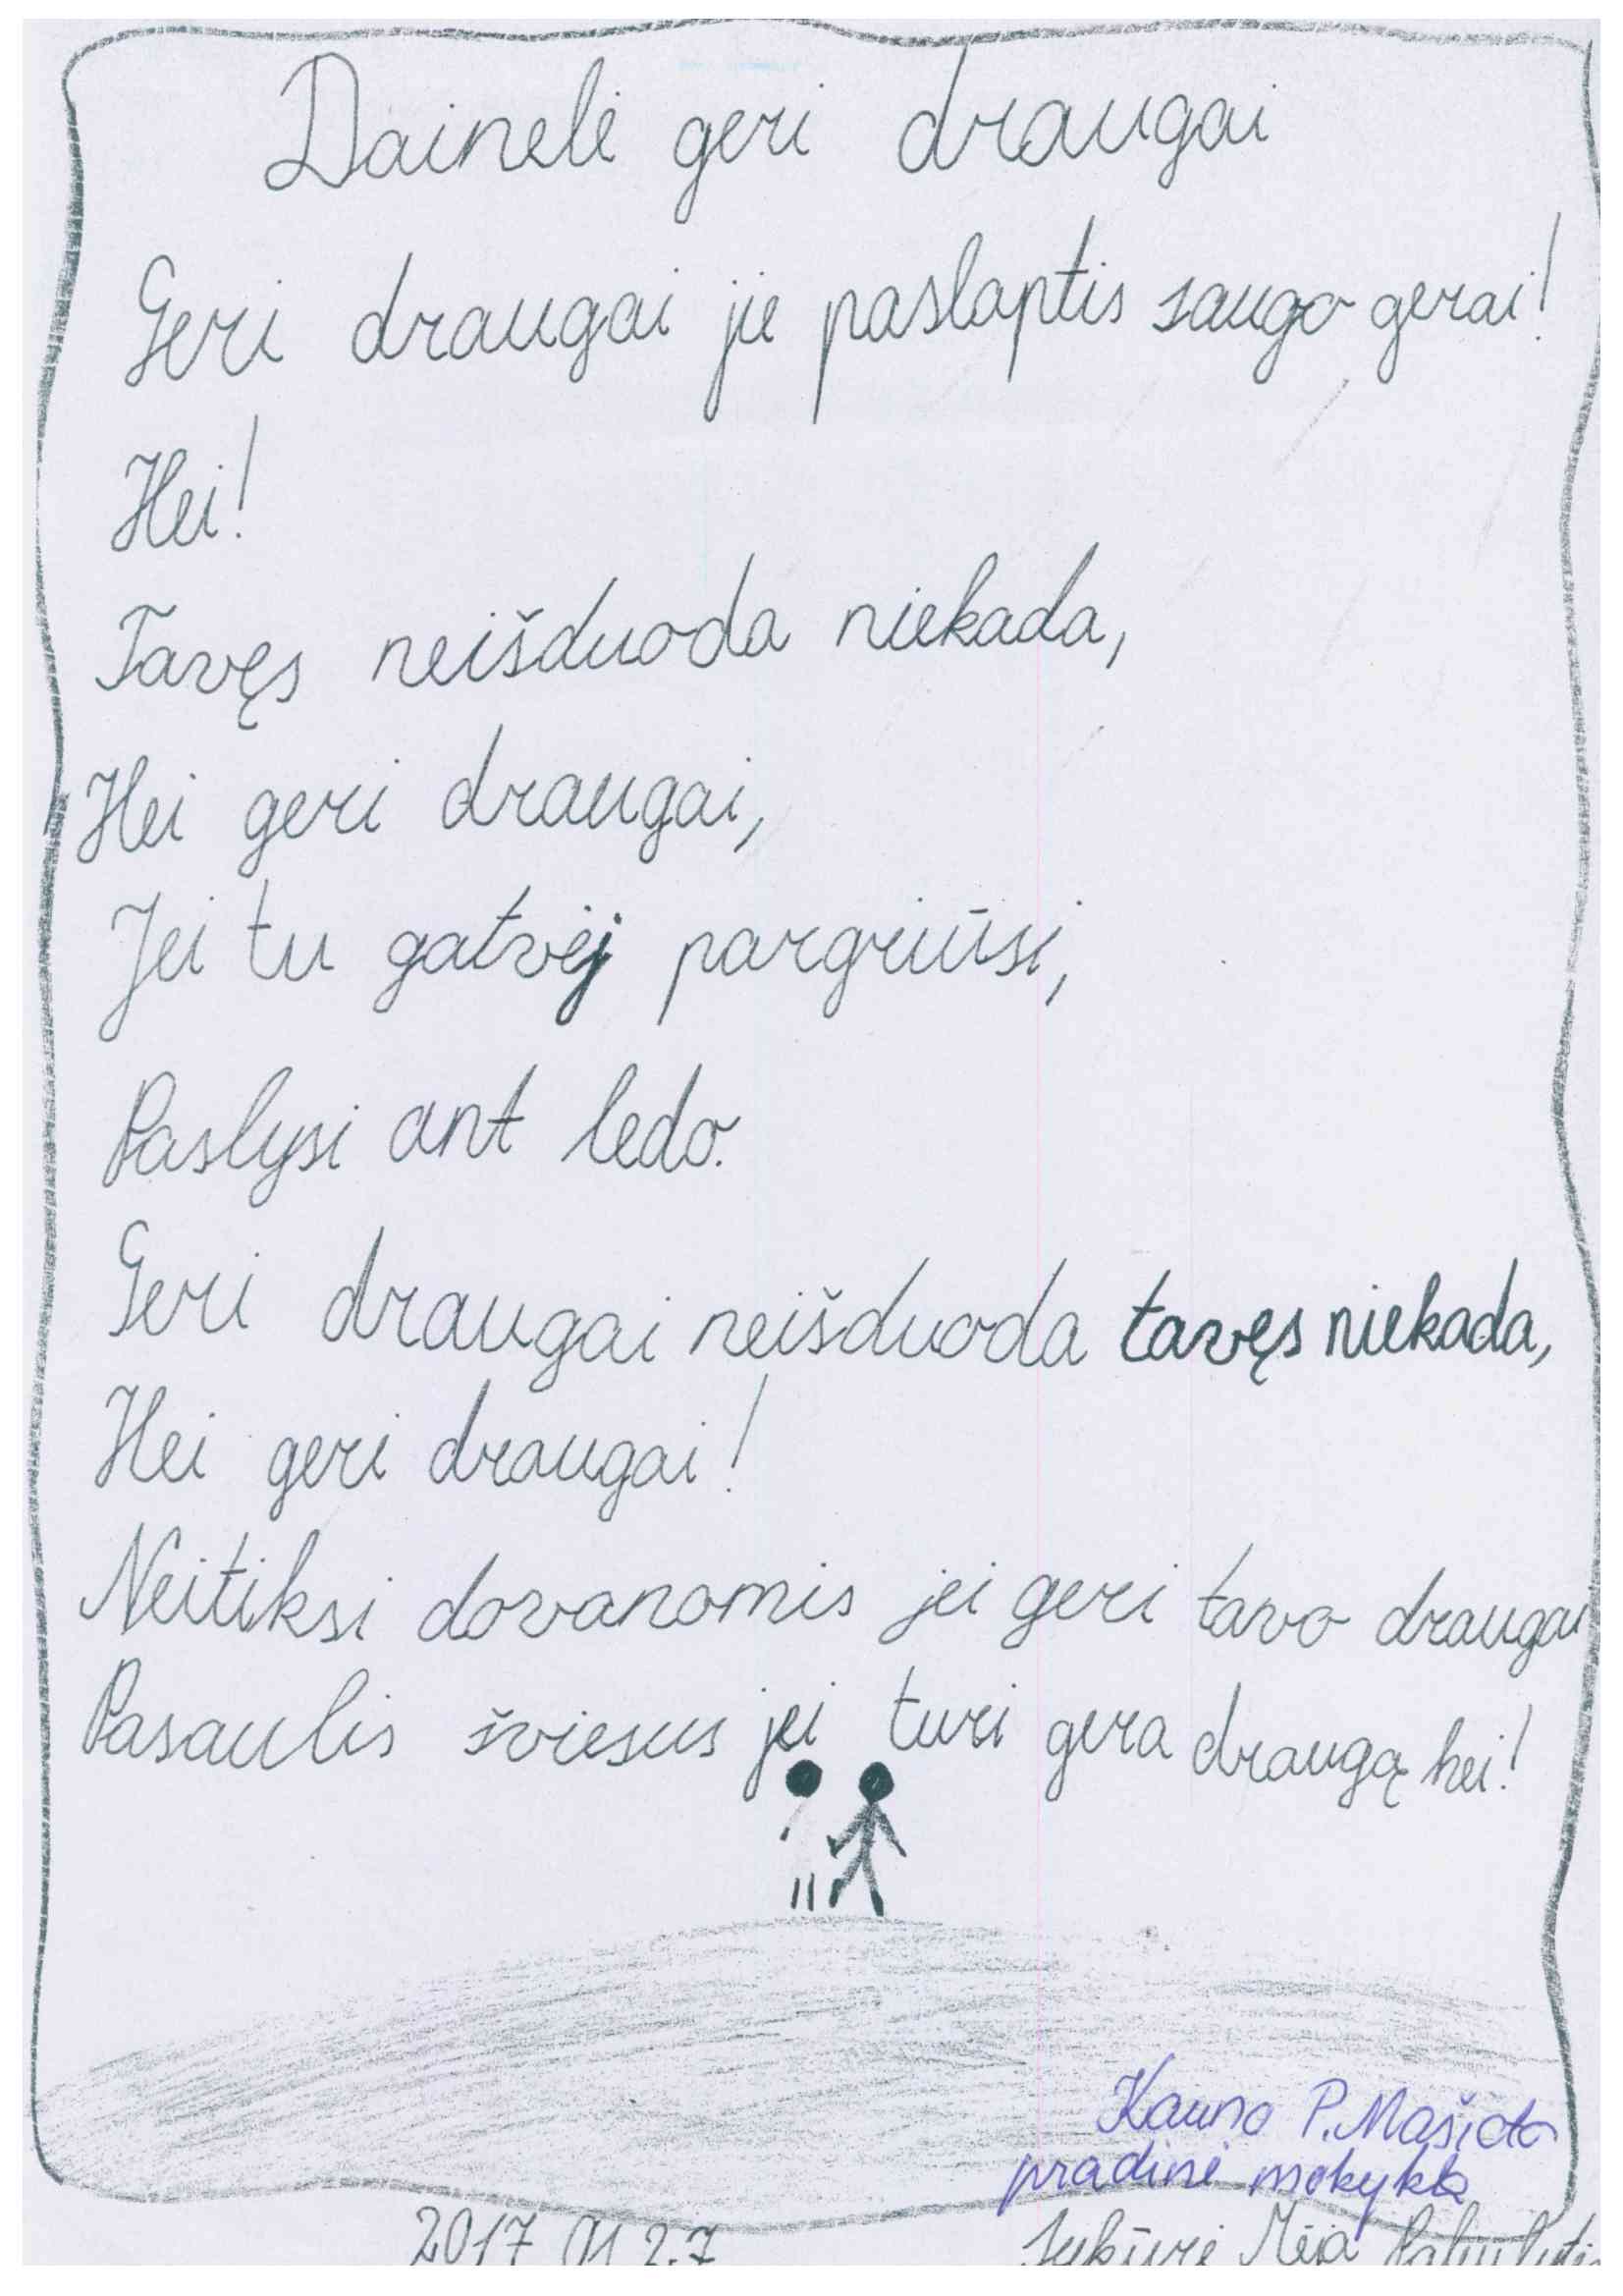 Dainelė geri draugai
Geri draugai jie paslaptis saugo gerai!
Hei!
Tavęs neišduoda niekada,
Hei geri draugai,
Jei tu gatvėj pargriūsi,
Paslysi ant ledo.
Geri draugai neišduoda tavęs niekada,
Hei geri draugai!
Neitiksi dovanomis jei geri tavo draugai
Pasaulis šviesus jei turi gera draugą hei!
Kauno P. Mašioto
pradinė mokykla
2017 01 27
Sukūrė Mėja